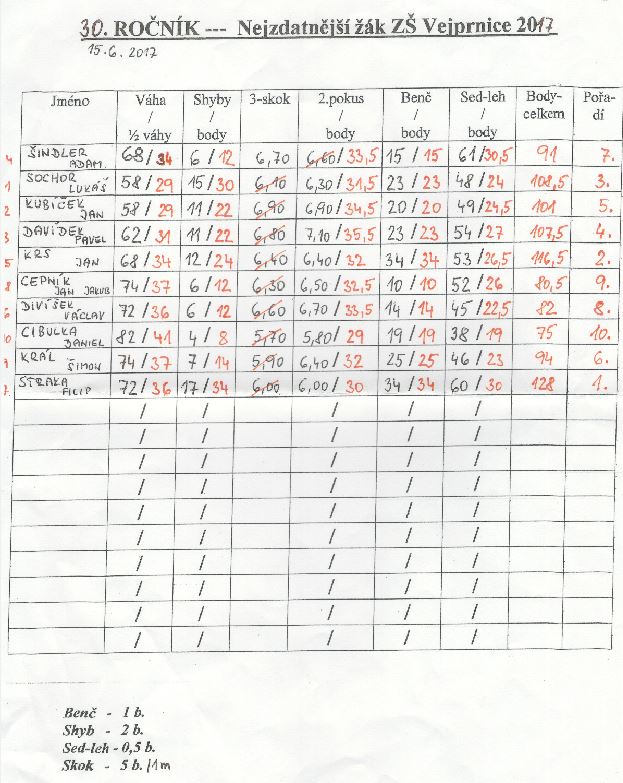 30. ROČNÍK --- Nejzdatnější žák ZŠ Vejprnice 2017
15.6.2017
Jméno Váha / ½ váhy Shyby / body 3-skok 2.pokus / body Benč / body Sed-leh / body Body-celkem Pořa-dí
4 ŠINDLER ADAM 68/34 6/12 6,70 6,60/33,5 15/15 61/30,5 91 7.
1 SOCHOR LUKÁŠ 58/29 15/30 6,10 6,30/31,5 23/23 48/24 108,5 3.
2 KUBÍČEK JAN 58/29 11/22 6,90 6,90/34,5 20/20 49/24,5 101 5.
3 DAVÍDEK PAVEL 62/31 11/22 6,80 7,10/35,5 23/23 54/27 107,5 4.
5 KRS JAN 68/34 12/24 6,40 6,40/32 34/34 53/26,5 116,5 2.
8 CEPNÍK JAN JAKUB 74/37 6/12 6,30 6,50/32,5 10/10 52/26 80,5 9.
6 DIVÍŠEK VÁCLAV 72/36 6/12 6,60 6,70/33,5 14/14 45/22,5 82 8.
10 CIBULKA DANIEL 82/41 4/8 5,70 5,80/29 19/19 38/19 75 10.
KRÁL ŠIMON 74/37 7/14 5,90 6,40/32 25/25 46/23 94 6.
STRAKA FILIP 72/36 17/34 6,00 6,00/30 34/34 60/30 128 1.
/ / / / /
/ / / / /
/ / / / /
/ / / / /
/ / / / /
/ / / / /
/ / / / /
/ / / / /
/ / / / /
/ / / / /
Benč - 1 b.
Shyb - 2 b.
Sed-leh - 0,5 b.
Skok - 5 b./1m